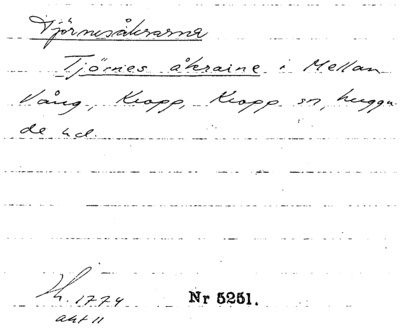 Tjörnesåkrarna
Tjörnes åkraine i Mellan
Vång, Kropp, Kropp sn, Luggu
de hd
Lh. 1774
akt 11
Nr 5251.